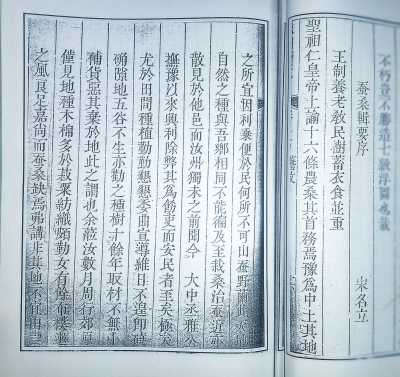 蚕桑輯要序
宋名立
王制養老敎民樹蓄衣食並重
聖祖仁皇帝上諭十六條農桑其首務焉豫爲中土其地
之所宜因利乘便於民何所不可山蚕野繭此天地
自然之種與吾鄉相同不能徧及至栽桑治蚕近亦
散見於他邑而汝州獨未之前聞今 大中丞雅公
撫豫以來興利除弊其爲飭吏而安民者至矣極矣
尤於田間種植勤勤懇懇委曲宣導雖日不遑卽磽
确隙地五谷不生亦勸之種樹十餘年取材不無小
補貨惡其棄於地此之謂也余蒞汝數月周行郊原
僅見地種木棉多於菽粟紡織頗勤女有餘布樸遫
之風良足嘉尙而蚕桑缺焉弗講非其地不宜由